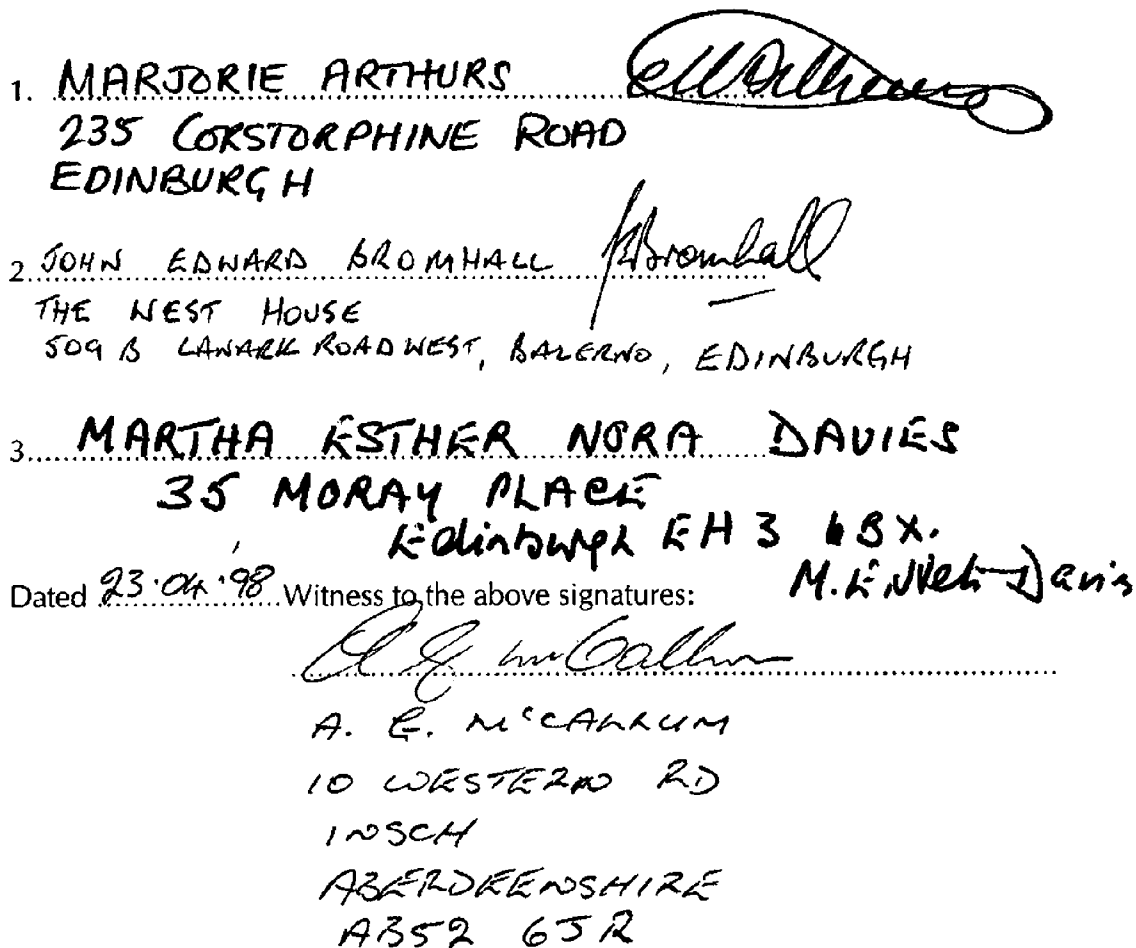 1. MARJORIE ARTHURS
235 CORSTORPHINE ROAD
EDINBURGH
2 JOHN EDWARD BROMHALL JEBromhall
THE WEST HOUSE
509 B LANARK ROAD WEST, BALERNO, EDINBURGH
3. MARTHA ESTHER NORA DAVIES
35 MORAY PLACE
Edinburgh EH3 6BX.
M.E. Davis
Dated 23.04.98 Witness to the above signatures:
A. E. McCALLUM
10 WESTERN RD
INSCH
ABERDEENSHIRE
AB52 6JR